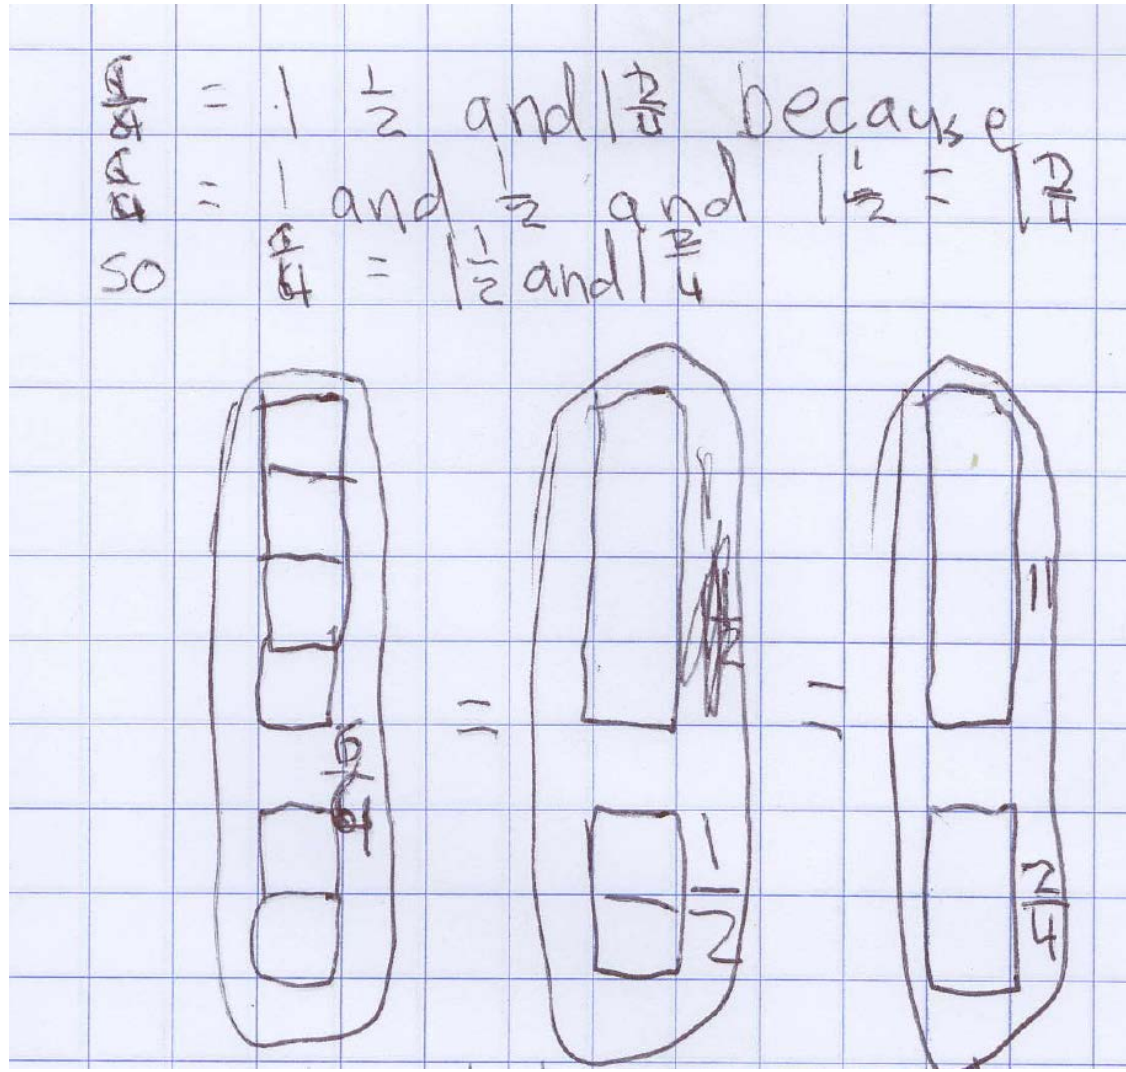 6/4 = 1 1/2 and 1 2/4 because
6/4 = 1 and 1/2 and 1 1/2 = 1 2/4
so 6/4 = 1 1/2 and 1 2/4
6/4 = = 1
1/2 2/4